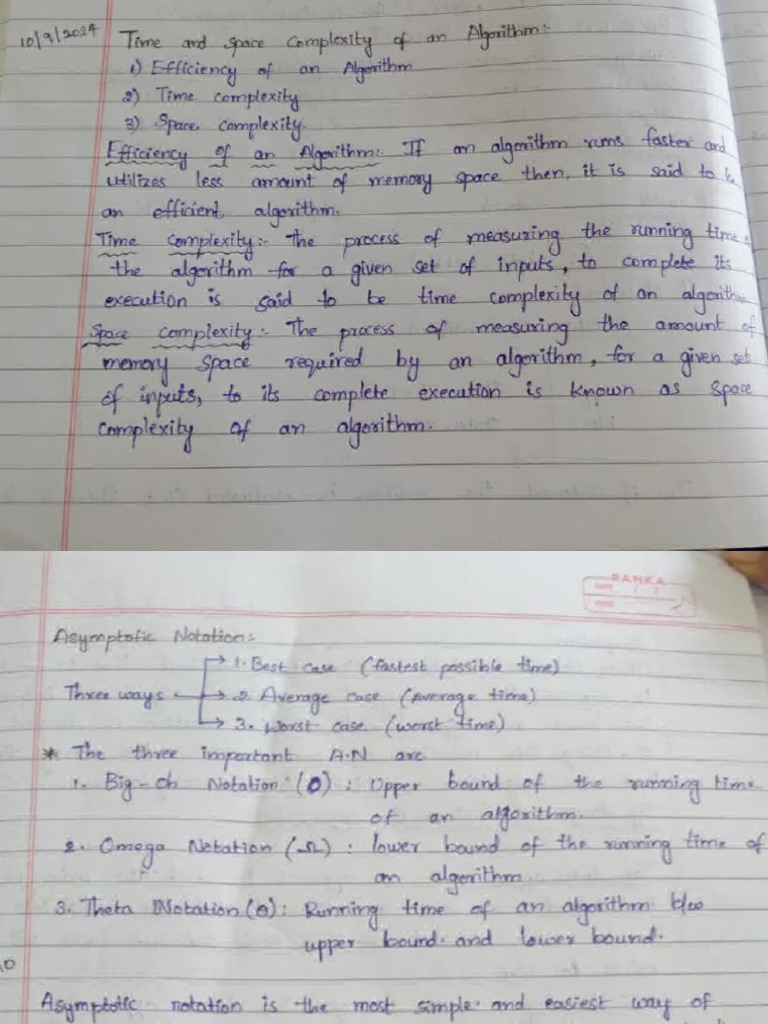 10/9/2024 Time and space complexity of an Algorithm:-
1) Efficiency of an Algorithm
2) Time complexity
3) Space complexity.
Efficiency of an Algorithm:- If an algorithm runs faster and
utilizes less amount of memory space then, it is said to be
an efficient algorithm.
Time complexity:- The process of measuring the running time
the algorithm for a given set of inputs, to complete its
execution is said to be time complexity of an algorithm
Space complexity:- The process of measuring the amount of
memory space required by an algorithm, for a given set
of inputs, to its complete execution is known as space
complexity of an algorithm.
RANKA
Asymptotic Notation:
1. Best case (fastest possible time)
Three ways → 2. Average case (Average time)
3. Worst case (worst time)
* The three important A.N are
1. Big-oh Notation (O) : Upper bound of the running time
of an algorithm.
2. Omega Notation (Ω) : lower bound of the running time of
an algorithm
3. Theta Notation (θ) : Running time of an algorithm b/w
upper bound. and lower bound.
Asymptotic notation is the most simple and easiest way of